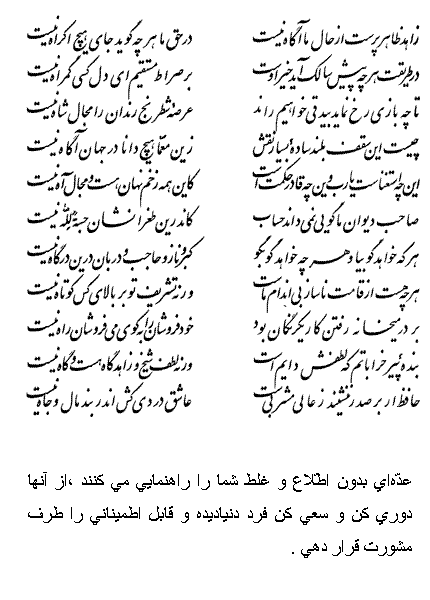 زاهد ظاهرپرست از حال ما آگاه نیست در حق ما هر چه گوید جای هیچ اکراه نیست
در طریقت هر چه پیش سالک آید خیر اوست بر صراط مستقیم ای دل کسی گمراه نیست
تا چه بازی رخ نماید بیدقی خواهیم راند عرصه شطرنج رندان را مجال شاه نیست
چیست این سقف بلند ساده بسیارنقش زین معما هیچ دانا در جهان آگاه نیست
این چه استغناست یارب وین چه قادر حکمت است کاین همه زخم نهان هست و مجال آه نیست
صاحب دیوان ما گویی نمی داند حساب کاندرین طغرا نشان حسبة لله نیست
هر که خواهد گو بیا و هر چه خواهد گو بگو کبر و ناز و حاجب و دربان درین درگاه نیست
هر چه هست از قامت ناساز بی اندام ماست ورنه تشریف تو بر بالای کس کوتاه نیست
بر در میخانه رفتن کار یکرنگان بود خودفروشان را به کوی می فروشان راه نیست
بنده پیر خراباتم که لطفش دایم است ورنه لطف شیخ و زاهد گاه هست و گاه نیست
حافظ ار بر صدر ننشیند ز عالی مشربی است عاشق دردی کش اندر بند مال و جاه نیست
عدّه‌اي بدون اطّلاع و غلط شما را راهنمايي مي کنند ،از آنها
دوري کن و سعي کن فرد دنياديده و قابل اطميناني را طرف
مشورت قرار دهي .